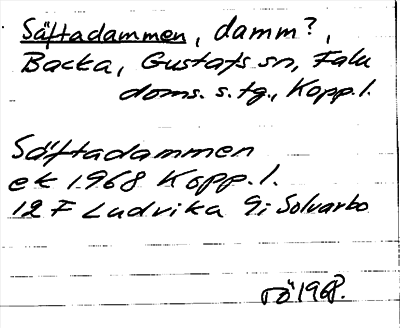 Säftadammen, damm?,
Backa, Gustafs sn, Falu
doms. s. tg., Kopp. l.
Säftadammen
ek 1968 Kopp. l.
12 F Ludvika 9i Solvarbo
TÖ 1968.